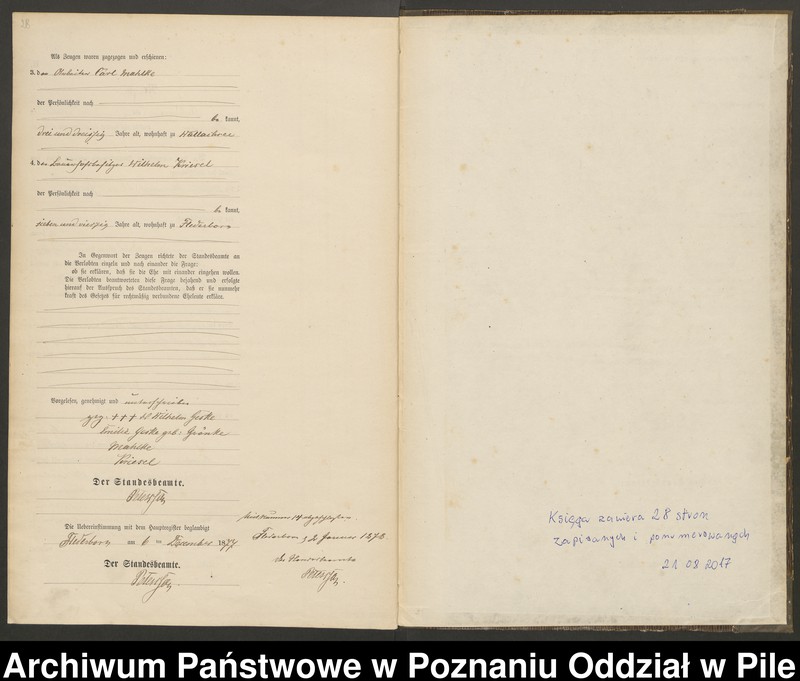 28.
Als Zeugen waren zugezogen und erschienen:
3. der Arbeiter Carl Mahlke
der Persönlichkeit nach
be kannt,
drei und dreißig Jahre alt, wohnhaft zu Wallachsee
4. der Wilhelm Kriesel
der Persönlichkeit nach
be kannt,
sieben und vierzig Jahre alt, wohnhaft zu Flederborn
In Gegenwart der Zeugen richtete der Standesbeamte an
die Verlobten einzeln und nach einander die Frage:
ob sie erklären, daß sie die Ehe mit einander eingehen wollen.
Die Verlobten beantworteten diese Frage bejahend und erfolgte
hierauf der Ausspruch des Standesbeamten, daß er sie nunmehr
kraft des Gesetzes für rechtmäßig verbundene Eheleute erkläre.
Vorgelesen, genehmigt und unterschrieben
gez. +++ Wilhelm Geske
Emilie Geske geb.
Mahlke
Kriesel
Der Standesbeamte.
Die Uebereinstimmung mit dem Hauptregister beglaubigt
Flederborn am 6 ten Dezember 1877
Der Standesbeamte.
Mit Nummer 14 abgeschlossen.
Flederborn, den Januar 1878.
der Standesbeamte
Księga zawiera 28 stron
zapisanych i ponumerowanych
21 08 2017
Archiwum Państwowe w Poznaniu Oddział w Pile